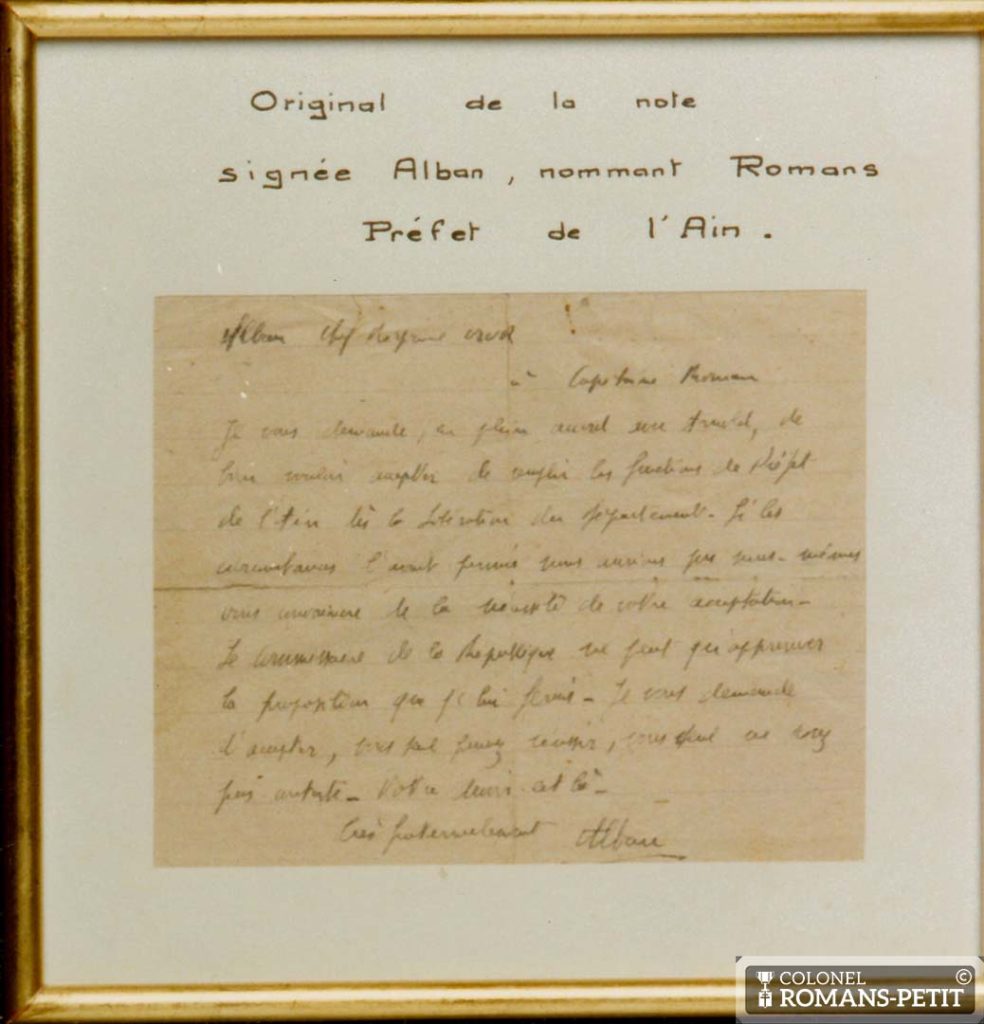 Original de la note
signée Alban, nommant Romans
Préfet de l'Ain.
Alban Chef
à Capitaine Romans
Je vous demande, en plein accord avec Arnold, de
bien vouloir accepter de remplir les fonctions de Préfet
de l'Ain dès la Libération du département. Si les
circonstances l'avait permis nous aurions nous-mêmes
vous de la nécessité de votre acceptation.
Le Commissaire de la République ne peut qu'approuver
la proposition que je lui ferais. Je vous demande
d'accepter, vous seul pouvez réussir, vous seul ne serez
pas. Votre devoir est là.
Très fraternellement Alban
COLONEL ©
ROMANS-PETIT